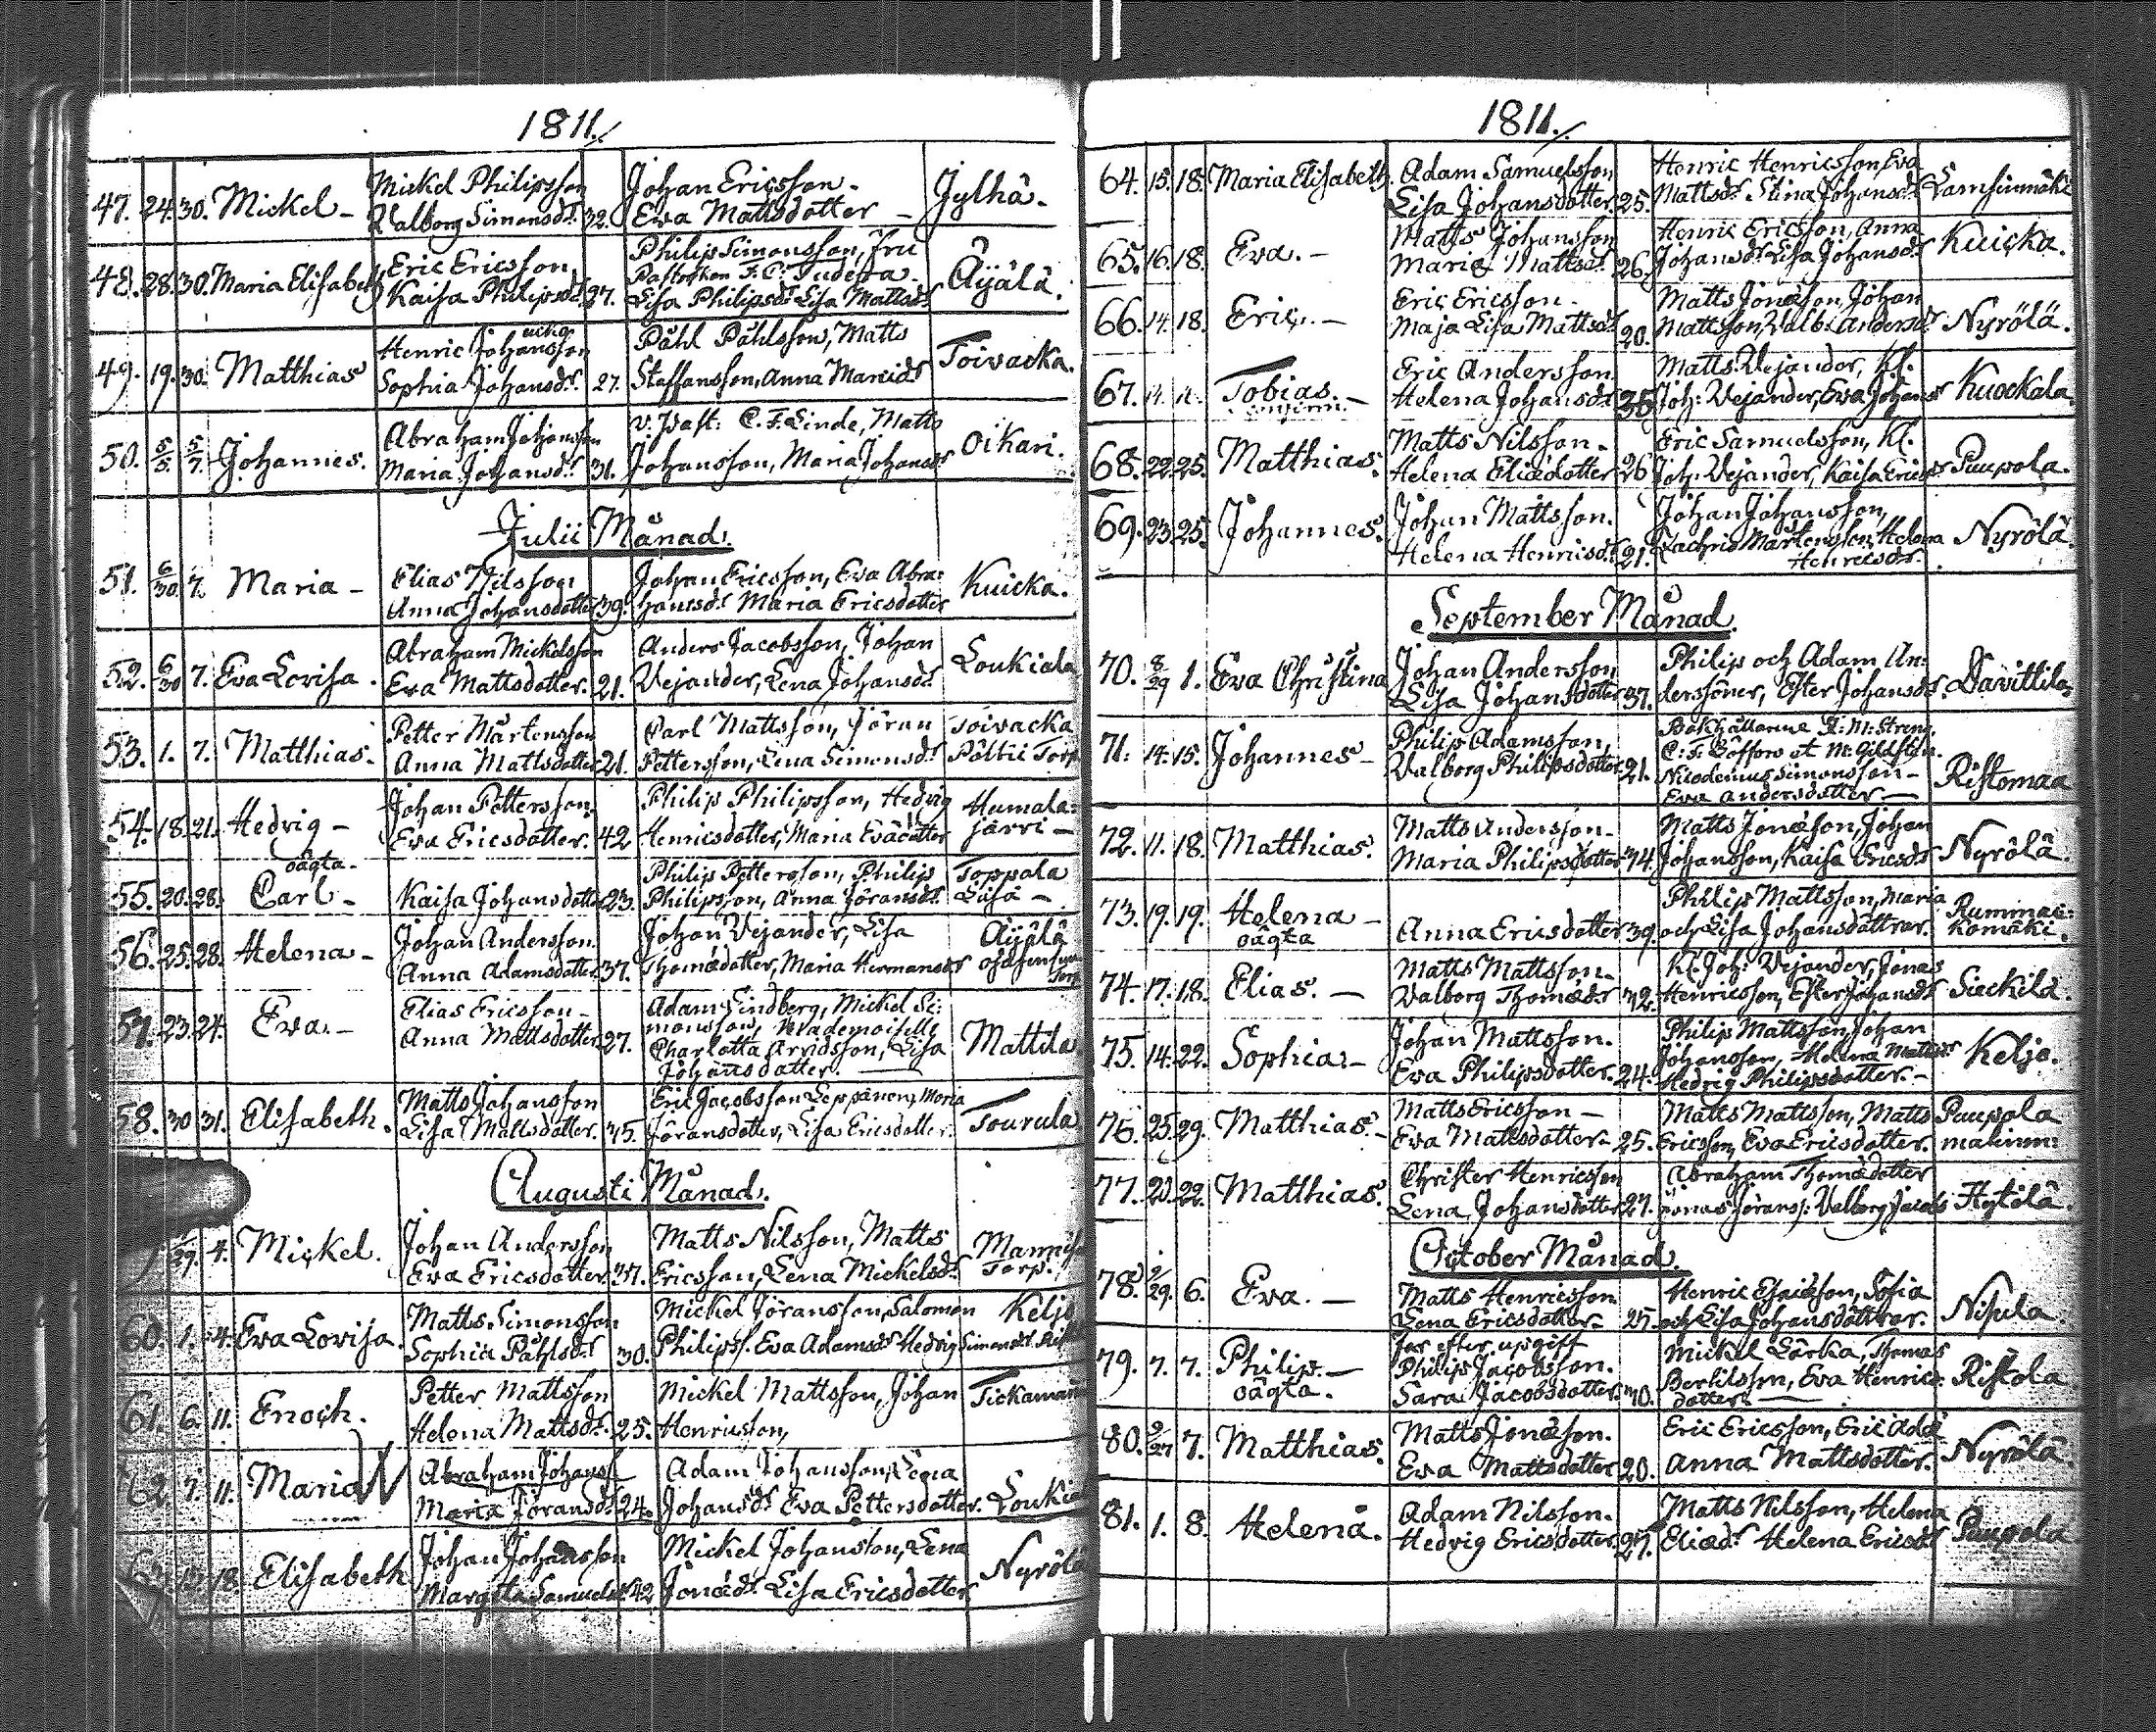 1811.
47. 24. 30. Mickel - Mickel Philipsson Johan Ericsson - Jylhä.
Valborg Simonsdr 32. Eva Mattsdotter -
48. 28. 30. Maria Elisabeth Eric Ericsson, Philip Simonsson, Fru Äijälä.
Kaisa Philipsdr 27. Lisa Philipsdr Lisa Mattsdr
49. 19. 30. Matthias Henric Johansson Påhl Påhlsson, Matts Toivacka.
Sophia Johansdr 27. Staffansson, Anna
50. 5/5 5/7 Johannes. Abraham Johansson C. F. Linde, Matts Oikari.
Maria Johansdr 31. Johansson, Maria Johansdr
Julii Månad.
51. 6/30 7. Maria - Elias Nilsson Johan Ericsson, Eva Abra- Kuicka.
Anna Johansdotter 39. hamsdr Maria Ericsdotter
52. 6/30 7. Eva Lovisa. Abraham Mickelsson Anders Jacobsson, Johan Loukiala
Eva Mattsdotter. 21. Vejander, Lena Johansdr
53. 1. 7. Matthias. Petter Mårtensson Carl Mattsson, Jöran Toivacka
Anna Mattsdotter 21. Pettersson, Lena Simonsdr Torp
54. 18. 21. Hedvig - Johan Pettersson Philip Philipsson, Hedvig Humala-
Eva Ericsdotter. 42 Henricsdotter, Maria järvi -
oägta.
55. 20. 28. Carl - Kaisa Johansdotter 23. Philip Pettersson, Philip Toppola
Philipsson, Anna Jöransdr
56. 25. 28. Helena - Johan Andersson Johan Vejander, Lisa Äijälä
Anna Adamsdotter 37. Thomædotter, Maria Hermansdr
57. 23. 24. Eva. - Elias Ericsson - Adam Lindberg, Mickel Si- Mattila
Anna Mattsdotter 27. monsson, Mademoiselle
Charlotta Arvidsson, Lisa
Johansdotter.
58. 30 31. Elisabeth. Matts Johansson Eric Jacobsson Leppänen, Maria Tourula
Lisa Mattsdotter. 35. Jöransdotter, Lisa Ericsdotter.
Augusti Månad.
29. 4. Mickel. Johan Andersson Matts Nilsson, Matts
Eva Ericsdotter. 37. Ericsson, Lena Mickelsdr Torp.
60. 1. 4. Eva Lovisa. Matts Simonsson Mickel Jöransson, Salomon Keljo
Sophia Påhlsdr 30. Philipss. Eva Adamsdr Hedvig Simonsdr
61. 6. 11. Enoch. Petter Mattsson Mickel Mattsson, Johan
Helena Mattsdr. 25. Henricsson,
62. 7. 11. Maria Abraham Johanss Adam Johansson, Lena
Maria Jöransdr 24. Johansdr Eva Pettersdotter.
18. Elisabeth Johan Johansson Mickel Johansson, Lena Nyrölä
Margeta Samuelsdr 42 Jonædr Lisa Ericsdotter
1811.
64. 15. 18. Maria Elisabeth. Adam Samuelsson Henric Henricsson, Eva
Lisa Johansdotter. 25. Mattsdr Stina Johansdr
65. 16. 18. Eva. - Matts Johansson Henric Ericsson, Anna Kuicka.
Maria Mattsdr 26. Johansdr Lisa Johansdr
66. 14. 18. Eric. - Eric Ericsson. Matts Jonæson, Johan Nyrölä.
Maja Lisa Mattsdr 20. Mattsson, Valb. Andersdr
67. Tobias. - Eric Andersson Matts Vejander, Kl. Kuockala.
Helena Johansdr 35 Joh: Vejander, Eva Johans
68. 22. 25. Matthias. Matts Nilsson. Eric Samuelsson, Kl. Puupola.
Helena Eliædotter 26 Joh: Vejander, Kaisa Ericsdr
69. 23. 25. Johannes. Johan Mattsson. Johan Johansson, Nyrölä
Helena Henricsdr 21. Zachris Mårtensson, Helena
Henricsdr.
September Månad
70. 8/29 1. Eva Christina Johan Andersson Philip och Adam An- Davittila
Lisa Johansdotter 37. derssöner, Ester Johansdr.
71. 14. 15. Johannes - Philip Adamsson, Bokhållarne
Valborg Philipsdotter 21. Nicodemus Simonsson - Ristomaa
Eva Andersdotter -
72. 11. 18. Matthias. Matts Andersson - Matts Jonæson, Johan
Maria Philipsdotter 34. Johansson, Kaisa Ericsdr Nyrölä.
73. 19. 19. Helena - Philip Mattsson, Maria
oägta Anna Ericsdotter 39. och Lisa Johansdöttrar.
74. 17. 18. Elias. - Matts Mattsson - Kl. Joh: Vejander, Jonas
Valborg Thomædr 42. Henricsson, Ester Johansdr
75. 14. 22. Sophia. - Johan Mattsson. Philip Mattsson, Johan
Eva Philipsdotter. 24. Johansson, Helena Mattsdr Keljo.
Hedvig Philipsdotter. -
76. 25. 29. Matthias. - Matts Ericsson - Matts Mattsson, Matts Puupola
Eva Mattsdotter - 25. Ericsson, Eva Ericsdotter.
77. 20. 22. Matthias. Christer Henricsson Abraham Thomædotter
Lena Johansdotter 27. Jonas Jöranss: Valborg Jacobs
October Månad
78. 9/29. 6. Eva. - Matts Henricsson Sofia Nisula
Lena Ericsdotter - 25. och Lisa Johansdöttrar.
79. 7. 7. Philip. - Far efter upgift
oägta. Philip Jacobsson. Mickel Lärka, Thomas
Sara Jacobsdotter. 40. Bertilsson, Eva Henrics Ristola
dotter -
80. 9/27 7. Matthias. Matts Jonæson. Eric Ericsson, Eric
Eva Mattsdotter 20. Anna Mattsdotter. Nyrölä
81. 1. 8. Helena. Adam Nilsson. Matts Nilsson, Helena
Hedvig Ericsdotter. 27. Eliædr Helena Ericsdr Puupola